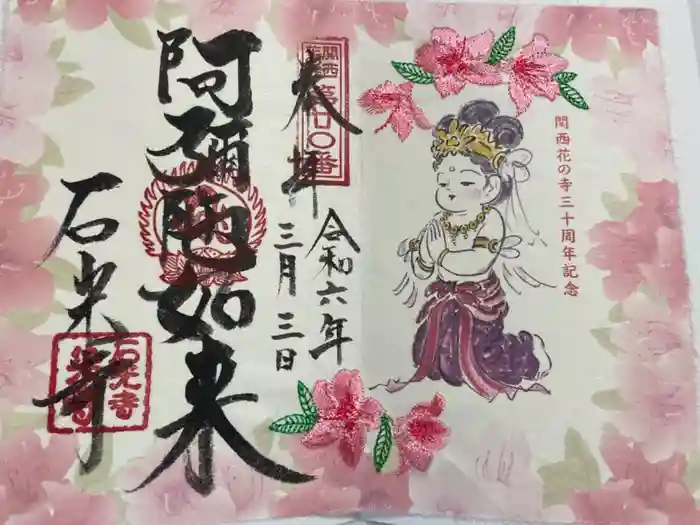 関西花の寺三十周年記念
奉拝
令和六年
三月三日
関西
花の寺
第二〇番
阿彌陀如来
石光寺
石光寺